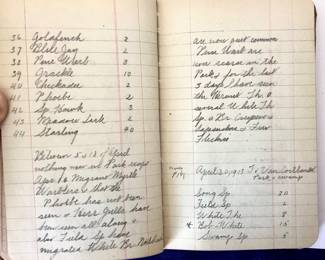 36 Goldfinch 2
37 Blue Jay 2
38 Pine Warb 8
39 Grackle 10
40 Chickadee 2
41 Phoebe 2
42 Sp. Hawk 3
43 Meadow Lark 2
44 Starling 40
Between 5 & 13 of April
nothing new in Park except
Apr 6 migra Myrtle
Warblers & that the
Phoebe has not been
seen & Herr Gulls have
been seen all along &
also Field Sp have
migrated White Br. Nuthach
are now quit common
Pine Warb are
now scarce in the
Park for the last
3 days I have seen
the Hermit Th. &
several White Th
Sp. & Br. Creepers &
Sapsuckers & Few
Flickers
April 20, 1913 Van Cortlandt
Park & swamp
Song Sp 20
Field Sp 2
White Th 8
Bob-White 15
Swamp Sp 5